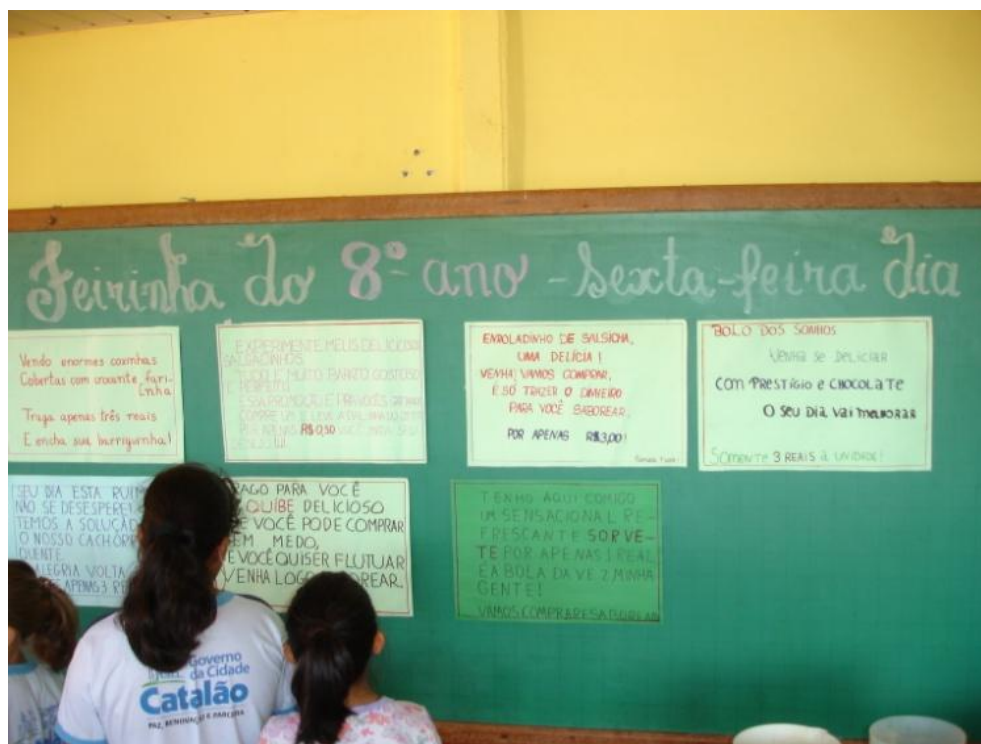 Feirinha do 8º ano - Sexta-feira dia
Vendo enormes coxinhas
Cobertas com crocante fari-
inha
Traga apenas três reais
E encha sua barriguinha!
EXPERIMENTE MEUS DELICIOSOS
SALGADINHOS
TUDO É MUITO BARATO GOSTOSO
E PERFEITO
ESSA PROMOÇÃO É PRA VOCÊS
COMPRE UM E LEVE
POR APENAS R$0,50 VOCÊ
ENROLADINHO DE SALSICHA,
UMA DELÍCIA!
VENHA, VAMOS COMPRAR,
É SÓ TRAZER O DINHEIRO
PARA VOCÊ SABOREAR.
POR APENAS R$3,00!
BOLO DOS SONHOS
VENHA SE DELICIAR
COM PRESTÍGIO E CHOCOLATE
O SEU DIA VAI MELHORAR
SOMENTE 3 REAIS A UNIDADE!
SEU DIA ESTA RUIM
NÃO SE DESESPERE!
TEMOS A SOLUÇÃO
O NOSSO CACHORR
QUENTE
ALEGRIA VOLTA
APENAS 3 RE
TRAGO PARA VOCÊ
QUIBE DELICIOSO
E VOCÊ PODE COMPRAR
SEM MEDO,
E VOCÊ QUISER FLUTUAR
VENHA LOGO
TENHO AQUI COMIGO
UM SENSACIONAL RE-
FRESCANTE SORVE-
TE POR APENAS 1 REAL
É A BOLA DA VEZ MINHA
GENTE!
VAMOS COMPRAR E SABOREAR
Governo
da Cidade
Catalão
PAZ, RENOVAÇÃO E PARCERIA